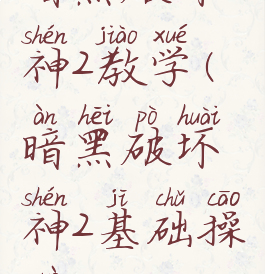 shén jiào xué
神2教学(
àn hēi pò huài
暗黑破坏
shén jī chǔ cāo
神2基础操